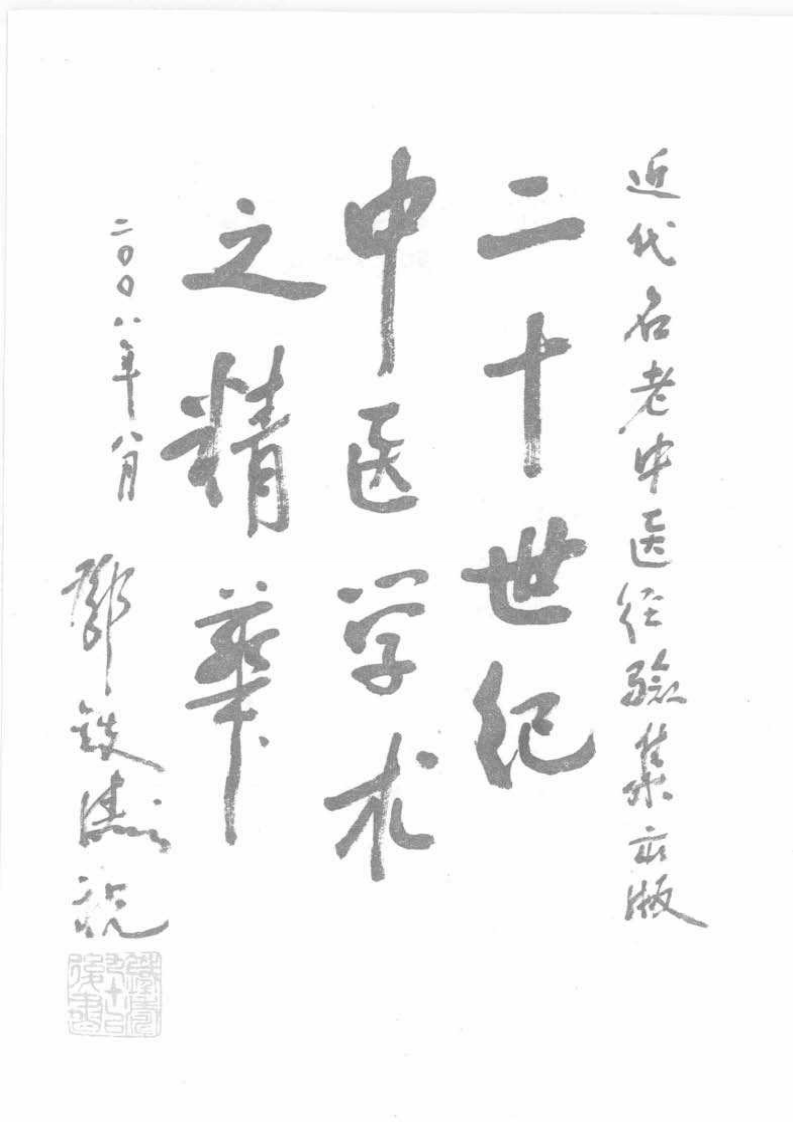 近代名老中医经验集出版
二十世纪
中医学术
之精华
二〇〇八年八月
邓铁涛祝